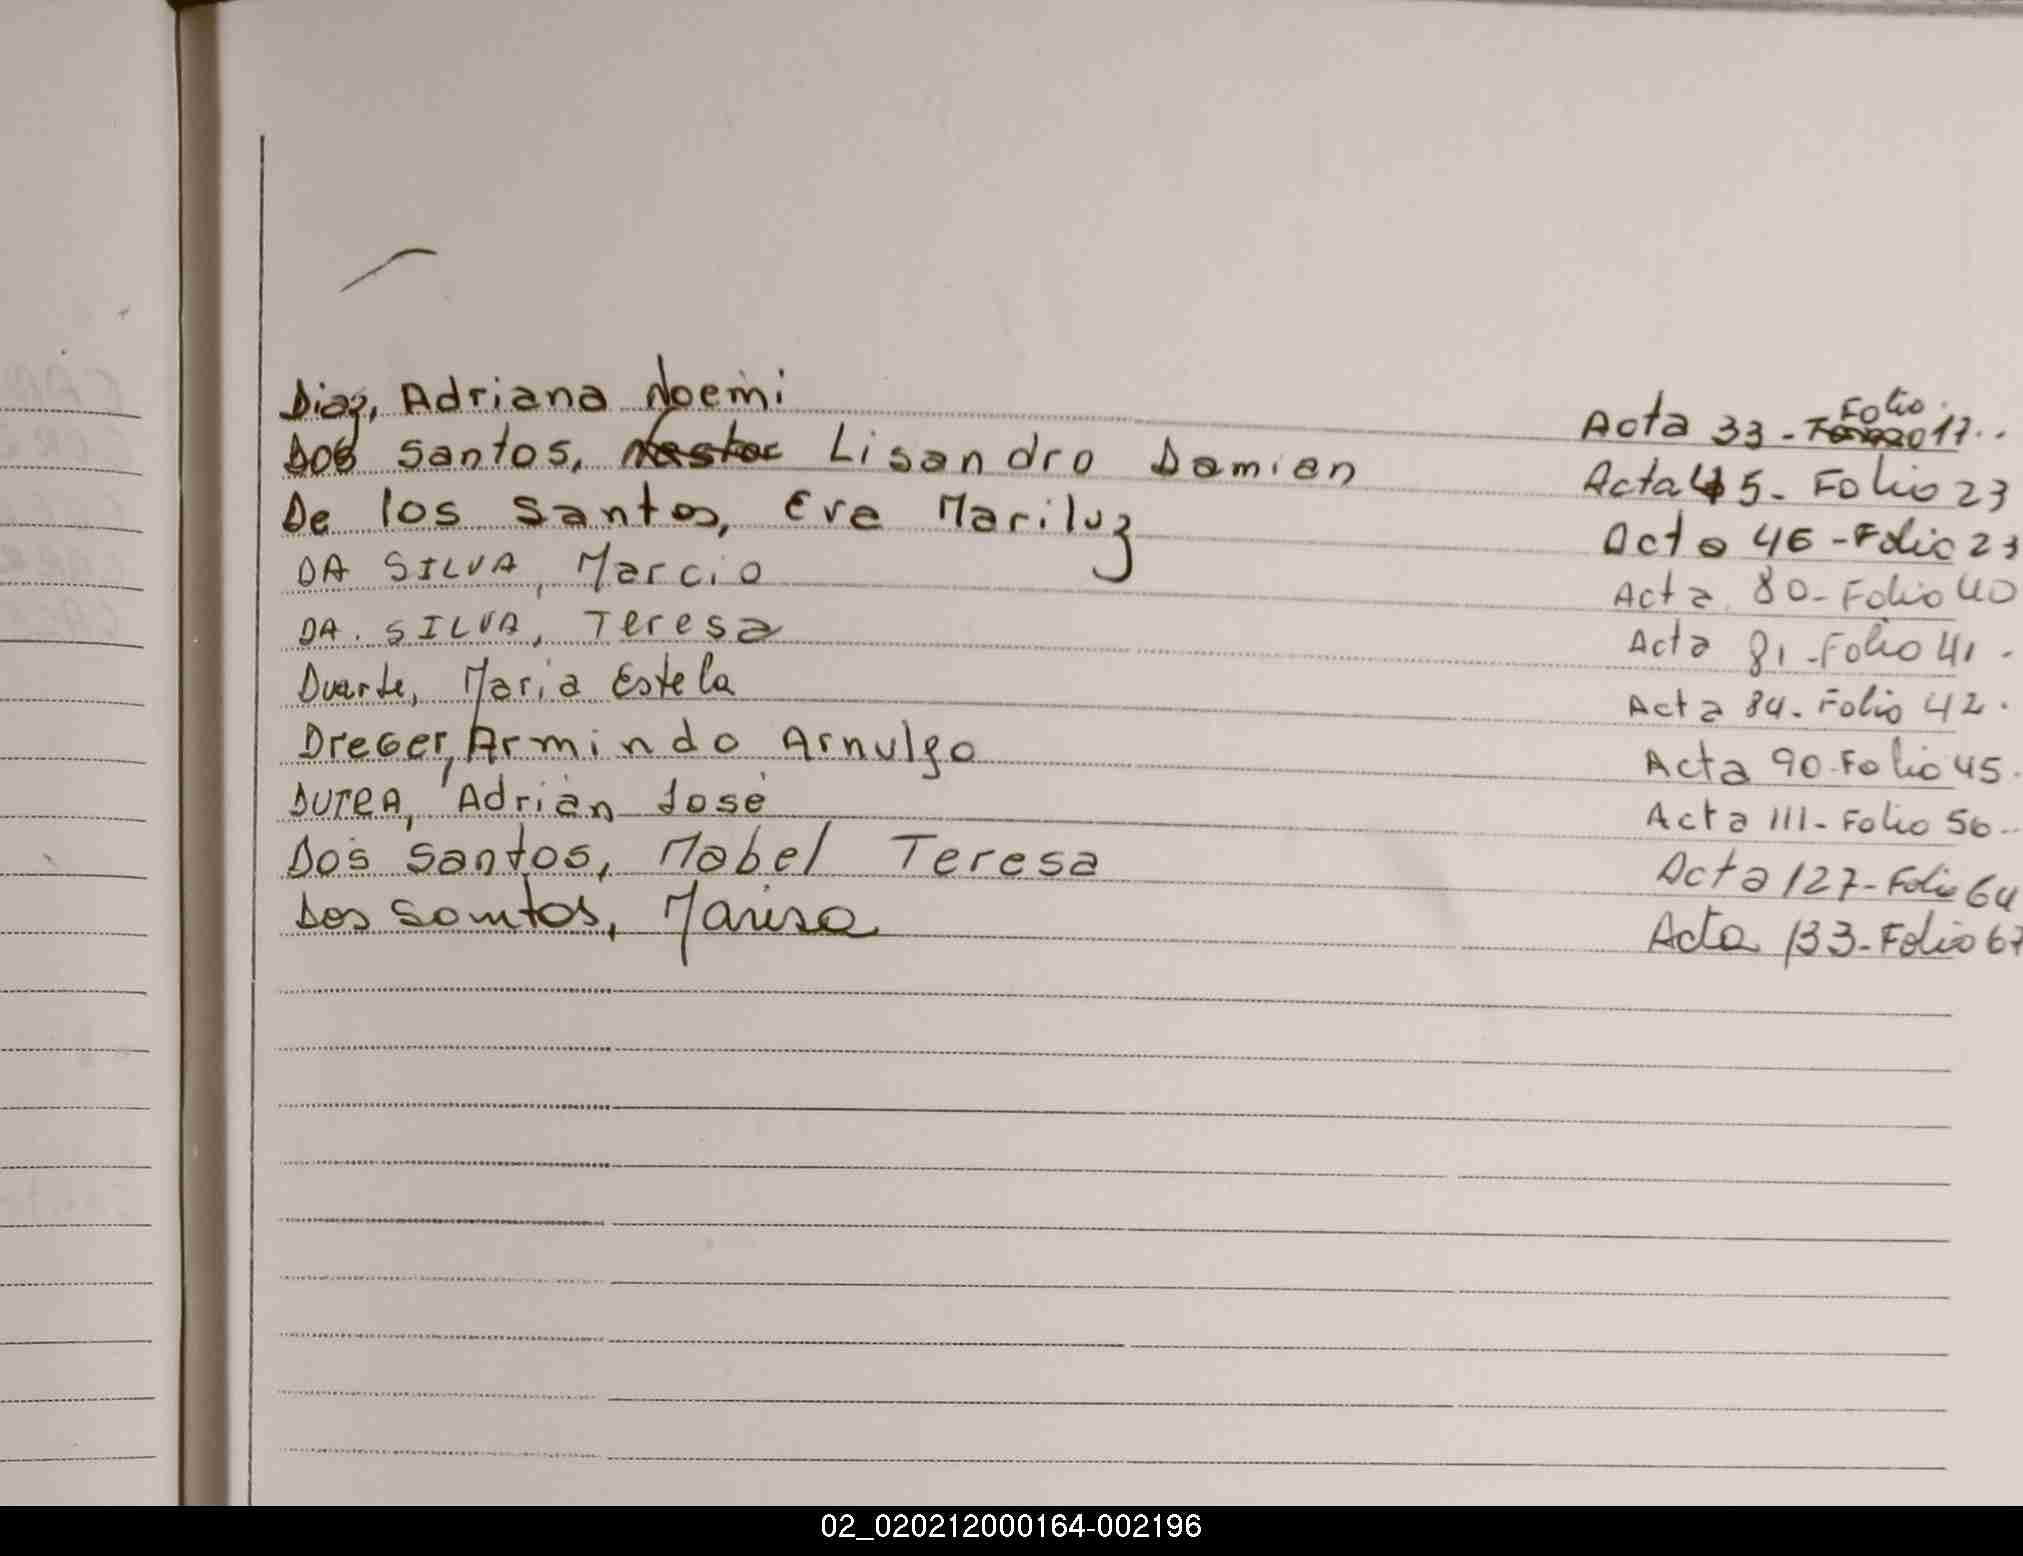 Diaz, Adriana Noemi Acta 33 - Folio 17..
Dos Santos, Nestor Lisandro Damian Acta 45 - Folio 23
De los Santos, Eva Mariluz Acta 46 - Folio 23
DA SILVA, Marcio Acta 80 - Folio 40
DA. SILVA, Teresa Acta 81 - Folio 41 -
Duarte, Maria Estela Acta 84 - Folio 42.
Dreger, Armindo Arnulgo Acta 90 - Folio 45.
DUTRA, Adrián José Acta 111 - Folio 56..
Dos Santos, Mabel Teresa Acta 127 - Folio 64
Dos Santos, Marisa Acta 133 - Folio 67
02_020212000164-002196